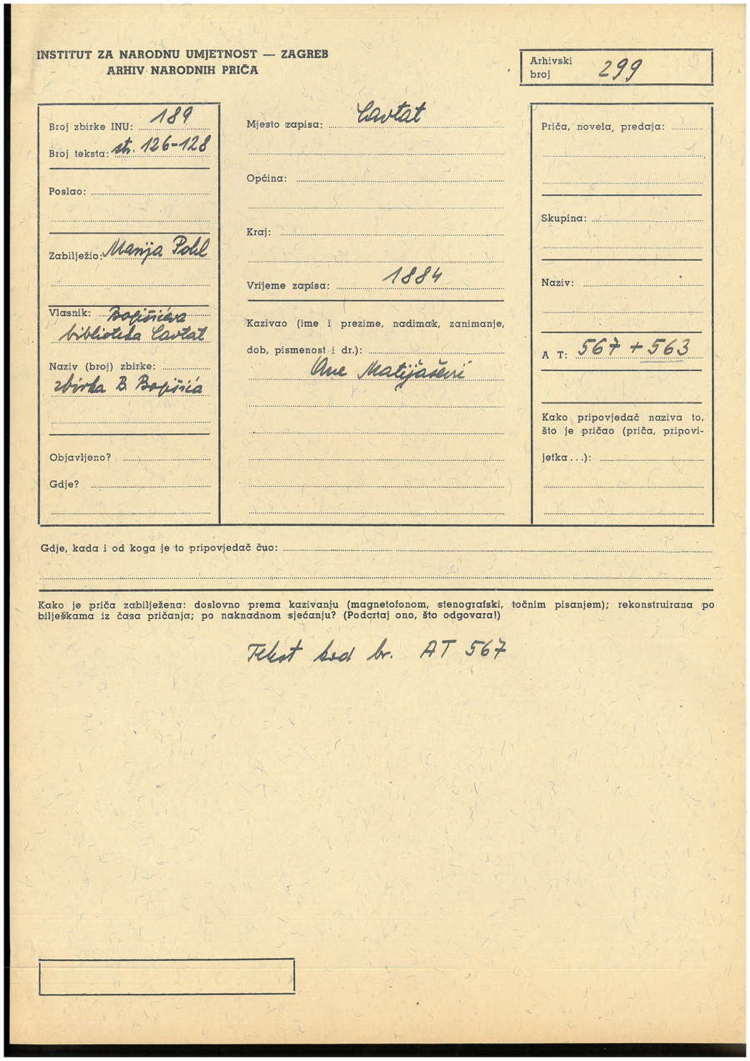 INSTITUT ZA NARODNU UMJETNOST — ZAGREB
ARHIV NARODNIH PRIČA
Arhivski
broj 299
Broj zbirke INU: 189
Broj teksta: str. 126-128
Poslao:
Zabilježio: Marija Pohl
Vlasnik: Bogišićeva
biblioteka Cavtat
Naziv (broj) zbirke:
zbirka B. Bogišića
Objavljeno?
Gdje?
Mjesto zapisa: Cavtat
Općina:
Kraj:
Vrijeme zapisa: 1884
Kazivao (ime i prezime, nadimak, zanimanje,
dob, pismenost i dr.):
Ane Matijašević
Priča, novela, predaja:
Skupina:
Naziv:
A T: 567 + 563
Kako pripovjedač naziva to,
što je pričao (priča, pripovi-
jetka...):
Gdje, kada i od koga je to pripovjedač čuo:
Kako je priča zabilježena: doslovno prema kazivanju (magnetofonom, stenografski, točnim pisanjem); rekonstruirana po
bilješkama iz časa pričanja; po naknadnom sjećanju? (Podcrtaj ono, što odgovara!)
Tekst kod br. AT 567